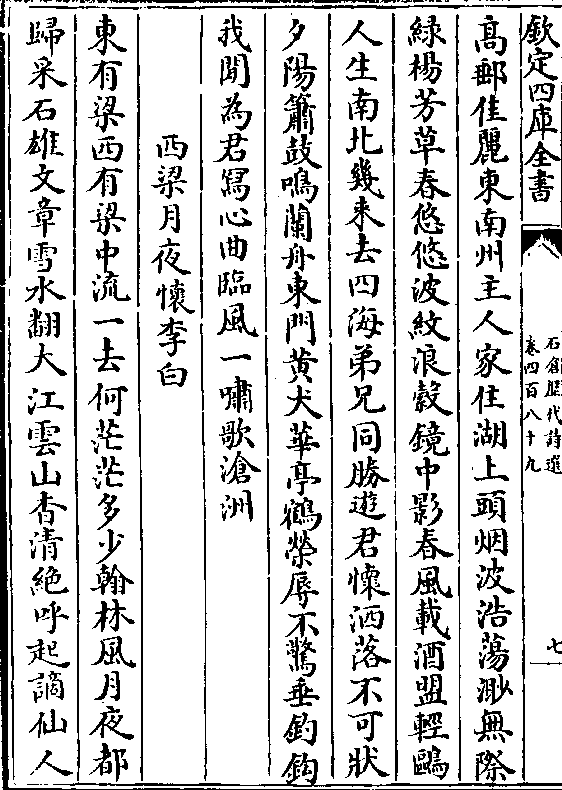 欽定四庫全書
石倉歷代詩選
卷四百八十九
七
高郵佳麗東南州主人家住湖上頭烟波浩蕩渺無際
緑楊芳草春悠悠波紋浪縠鏡中影春風載酒盟輕鷗
人生南北幾來去四海弟兄同勝遊君懷洒落不可狀
夕陽簫鼓鳴蘭舟東門黄犬華亭鶴榮辱不驚垂釣鈎
我聞為君寫心曲臨風一嘯歌滄洲
西梁月夜懷李白
東有梁西有梁中流一去何茫茫多少翰林風月夜都
歸采石雄文章雪水翻大江雲山杳清絶呼起謫仙人